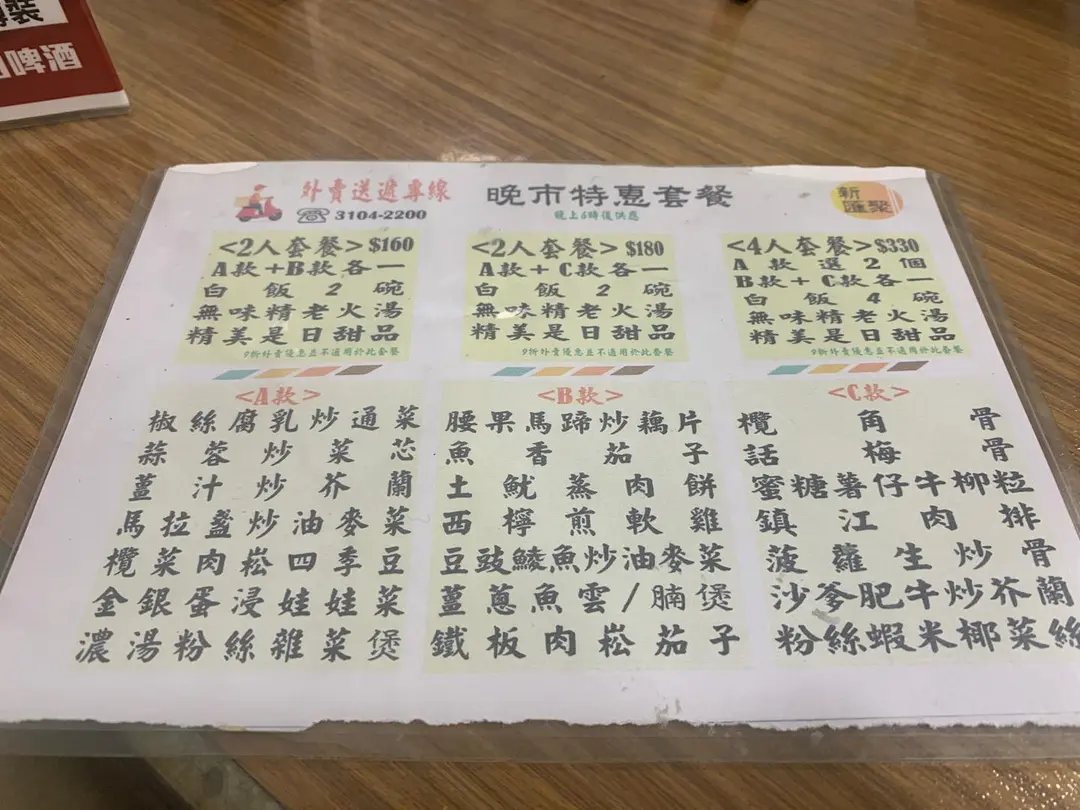 裝
啤酒
外賣送遞專線
3104-2200
晚市特惠套餐
晚上6時後供應
新匯聚
<2人套餐>$160
A款+B款各一
白飯2碗
無味精老火湯
精美是日甜品
9折外賣優惠並不適用於此套餐
<2人套餐>$180
A款+C款各一
白飯2碗
無味精老火湯
精美是日甜品
9折外賣優惠並不適用於此套餐
<4人套餐>$330
A款選2個
B款+C款各一
白飯4碗
無味精老火湯
精美是日甜品
9折外賣優惠並不適用於此套餐
<A款>
椒絲腐乳炒通菜
蒜蓉炒菜芯
薑汁炒芥蘭
馬拉盞炒油麥菜
欖菜肉崧四季豆
金銀蛋浸娃娃菜
濃湯粉絲雜菜煲
<B款>
腰果馬蹄炒藕片
魚香茄子
土魷蒸肉餅
西檸煎軟雞
豆豉鯪魚炒油麥菜
薑蔥魚雲/腩煲
鐵板肉崧茄子
<C款>
欖角骨
話梅骨
蜜糖薯仔牛柳粒
鎮江肉排
菠蘿生炒骨
沙爹肥牛炒芥蘭
粉絲蝦米椰菜絲